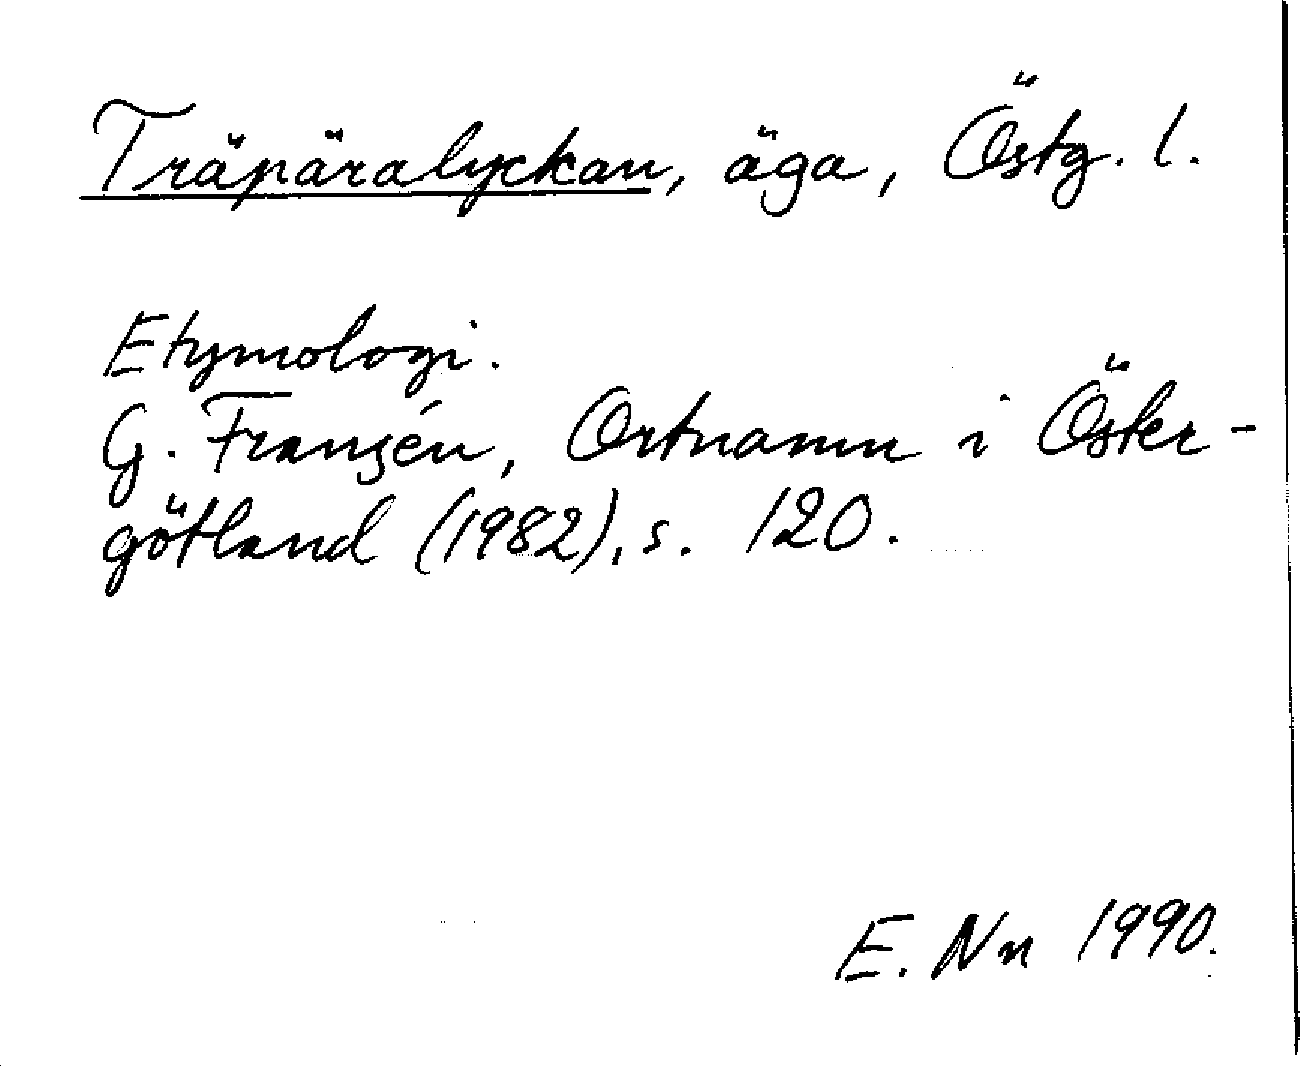 Träpäralyckan, äga, Östg. l.
Etymologi.
G. Franzén, Ortnamn i Öster-
götland (1982), s. 120.
E. Nn 1990.